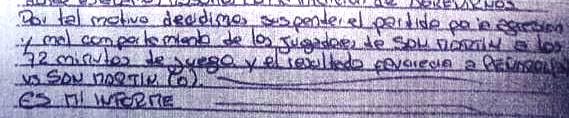 Por tal motivo decidimos suspender el partido por la agresion
y mal comportamiento de los jugadores de SAN MARTIN a los
72 minutos de juego y el resultado favorecia a
vs SAN MARTIN (0).
ES MI INFORME